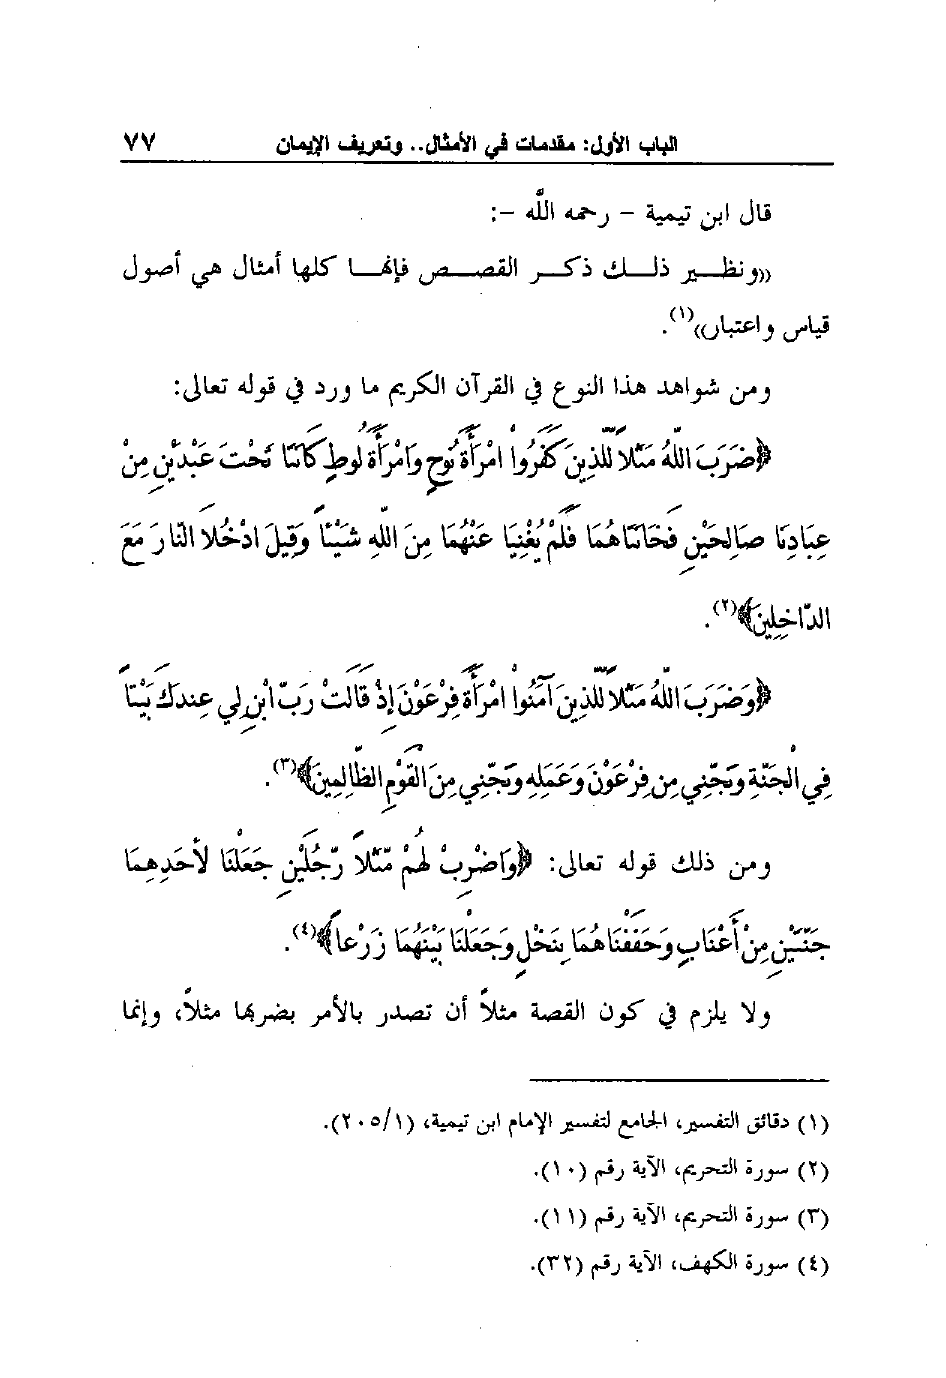 الباب الأول: مقدمات في الأمثال.. وتعريف الإيمان ٧٧
قال ابن تيمية – رحمه اللَّه –:
((ونظــير ذلــك ذكــر القصــص فإنهــا كلها أمثال هي أصول
قياس واعتبار))(١).
ومن شواهد هذا النوع في القرآن الكريم ما ورد في قوله تعالى:
﴿ضَرَبَ اللَّهُ مَثَلاً لِّلَّذِينَ كَفَرُواْ امْرَأَةَ نُوحٍ وَامْرَأَةَ لُوطٍ كَانَتَا تَحْتَ عَبْدَيْنِ مِنْ
عِبَادِنَا صَالِحَيْنِ فَخَانَتَاهُمَا فَلَمْ يُغْنِيَا عَنْهُمَا مِنَ اللَّهِ شَيْئاً وَقِيلَ ادْخُلاَ النَّارَ مَعَ
الدَّاخِلِينَ﴾(٢).
﴿وَضَرَبَ اللَّهُ مَثَلاً لِّلَّذِينَ آمَنُواْ امْرَأَةَ فِرْعَوْنَ إِذْ قَالَتْ رَبِّ ابْنِ لِي عِندَكَ بَيْتاً
فِي الْجَنَّةِ وَنَجِّنِي مِن فِرْعَوْنَ وَعَمَلِهِ وَنَجِّنِي مِنَ الْقَوْمِ الظَّالِمِينَ﴾(٣).
ومن ذلك قوله تعالى: ﴿وَاضْرِبْ لَهُمْ مَّثَلاً رَّجُلَيْنِ جَعَلْنَا لأَحَدِهِمَا
جَنَّتَيْنِ مِنْ أَعْنَابٍ وَحَفَفْنَاهُمَا بِنَخْلٍ وَجَعَلْنَا بَيْنَهُمَا زَرْعاً﴾(٤).
ولا يلزم في كون القصة مثلاً أن تصدر بالأمر بضربها مثلاً، وإنما
(١) دقائق التفسير، الجامع لتفسير الإمام ابن تيمية، (٢٠٥/١).
(٢) سورة التحريم، الآية رقم (١٠).
(٣) سورة التحريم، الآية رقم (١١).
(٤) سورة الكهف، الآية رقم (٣٢).